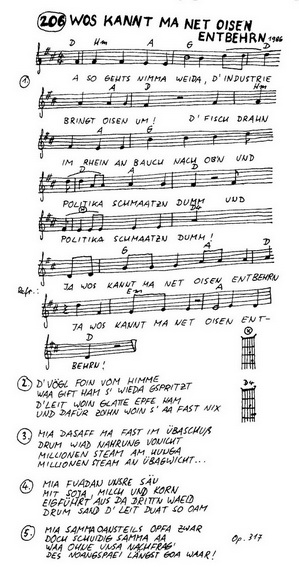 206 WOS KANNT MA NET OISEN
ENTBEHRN 1986
D Hm A G D
1. A SO GEHTS NIMMA WEIDA, D'INDUSTRIE
A D Hm
BRINGT OISEN UM! D'FISCH DRAHN
A G
IM RHEIN AN BAUCH NACH OB'N UND
D A D
POLITIKA SCHMAATZN DUMM UND
POLITIKA SCHMAATZN DUMM!
G A D
JA WOS KANNT MA NET OISEN ENTBEHRN
Refr.: Em G A
JA WOS KANNT MA NET OISEN ENT-
D
BEHRN!
2. D'VÖGL FOIN VOM HIMME
WAA GIFT HAM S' WIEDA GSPRITZT
D'LEIT WOIN GLATTE EPFE HAM
UND DAFÜR ZOHN WOIN S' AA FAST NIX
3. MIA DASAFF MA FAST IM ÜBASCHUß
DRUM WIAD NAHRUNG VONICHT
MILLIONEN STEAM AM HUNGA
MILLIONEN STEAM AN ÜBAGWICHT...
4. MIA FUADAN UNSRE SÄU
MIT SOJA, MILCH UND KORN
EIGFÜHRT AUS DA DRITTN WAEID
DRUM SAND D'LEIT DUAT SO OAM
5. MIA SAMMA OANSTEILS OPFA ZWAR
DOCH SCHUIDIG SAMMA AA
WAA OHNE UNSA NACHFRAG'
DES NOANGSPAEI LÄNGST GOA WAAR!
Op. 317